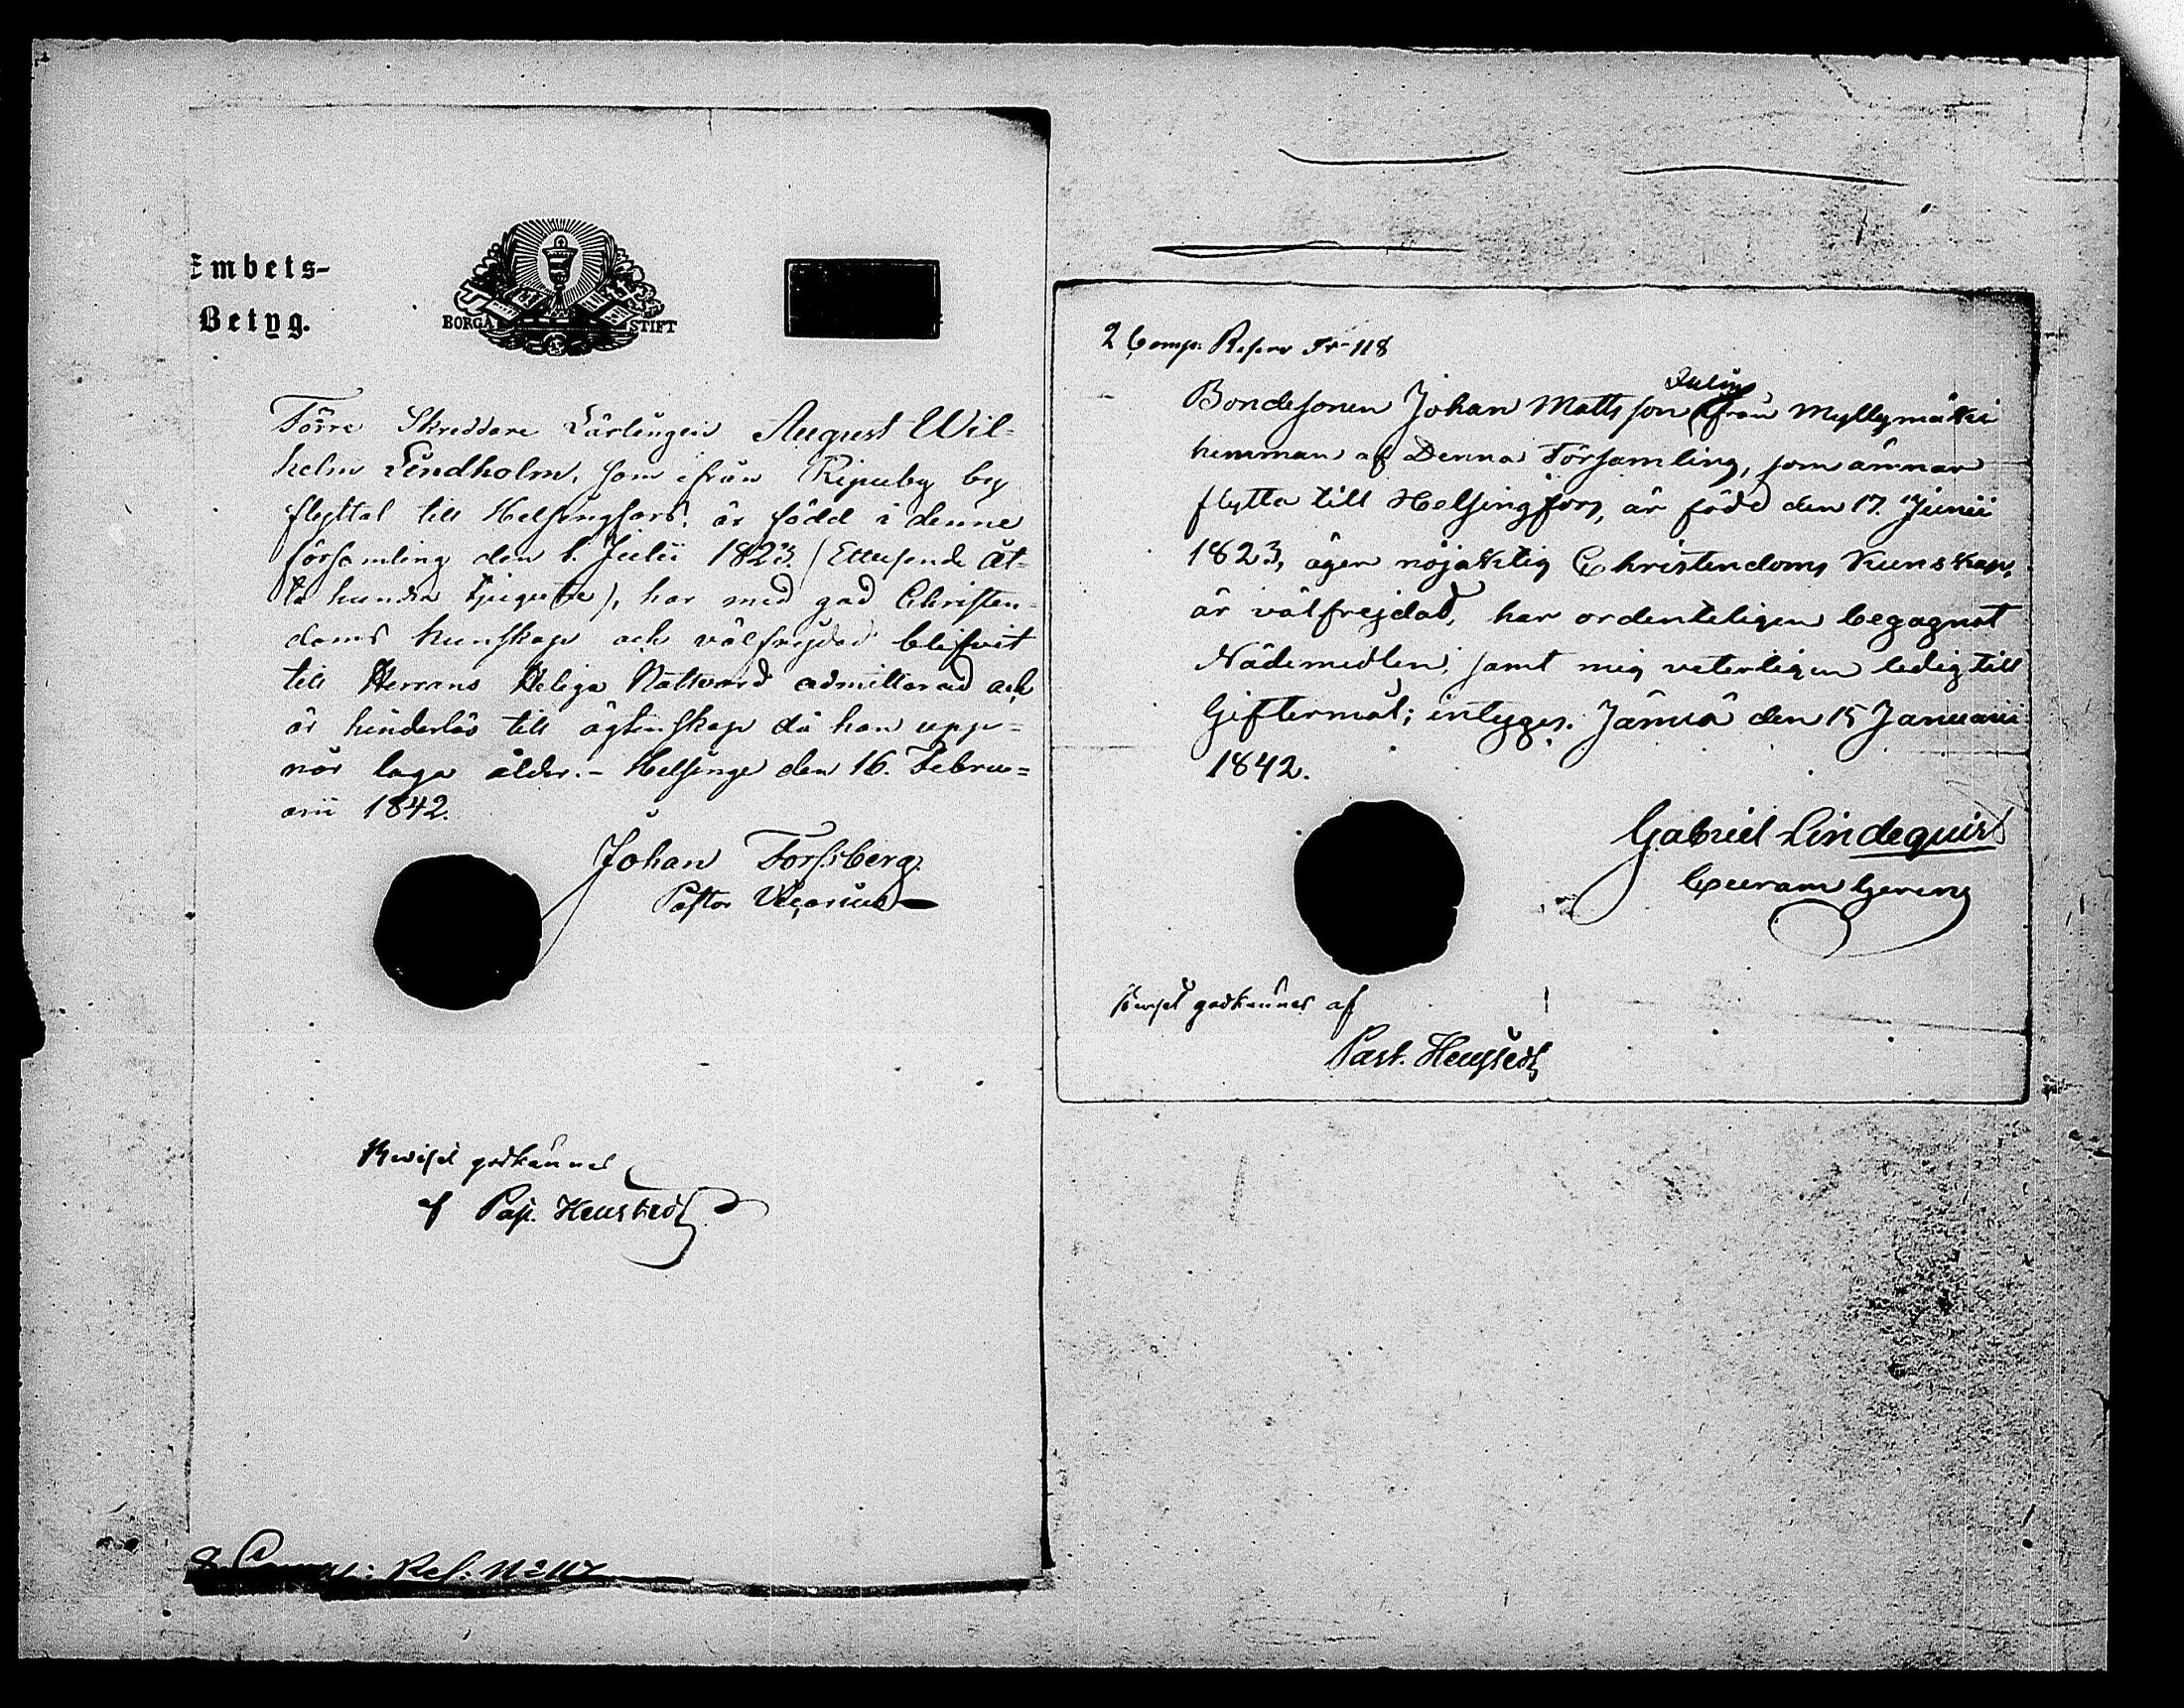 Embets-
Betyg.
BORGÅ STIFT
Förre Skreddare Lärlingen August Wil=
helm Lindholm, som ifrån Ripuby by
flyttat till Helsingfors, är född i denne
församling den 1. Julii 1823. (Ettusende åt=
ta hundra tjugutre), har med god Christen=
doms kunskap och välfrejdad blifvit
till Herrans Heliga Nattvard admitterad och
är hinderlös till ägtenskap då han upp=
når laga ålder. - Helsinge den 16. Febru=
arii 1842.
Johan Forssberg.
Pastor Vicarius
Beviset godkännes
af Past. Heurstedt
Comp: Res: No 117
2 Comp: Reserv 118
Julius
Bondesonen Johan Mattsson från Myllymäki
hemman af Denna Församling, som ämnar
flytta till Helsingfors, är född den 17. Junii
1823, äger nöjaktig Christendoms Kunskap,
är välfrejdad, har ordenteligen begagnat
Nådemedlen, samt mig veterligen ledig till
Giftermål; intygas. Jämsä den 15 Januarii
1842.
Gabriel Lindequist
Curam Gerens
Beviset godkännes af
Past. Heurstedt